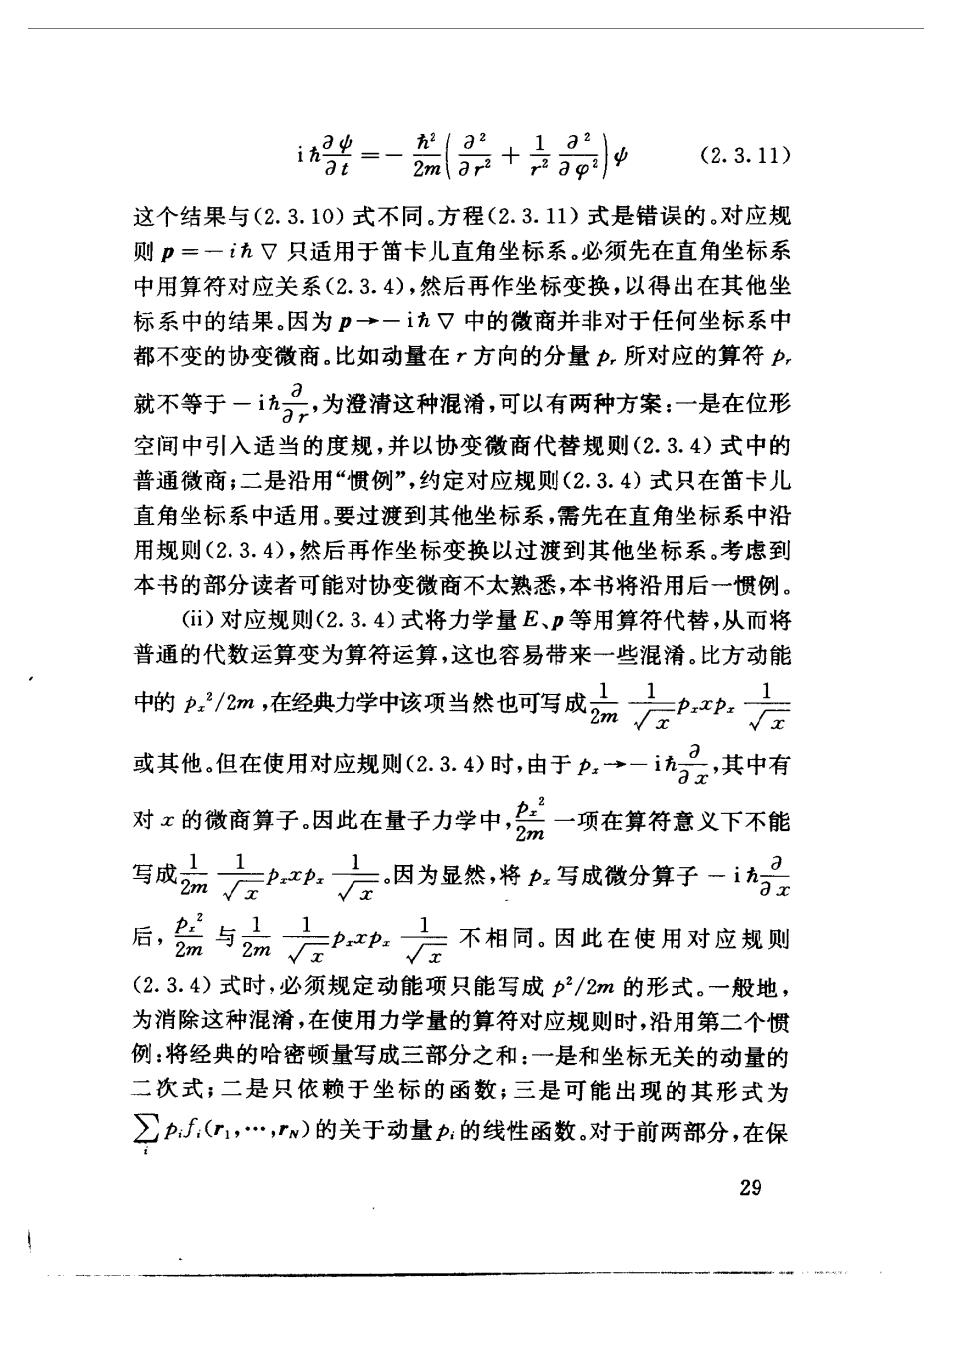 iħ∂ψ/∂t = − ħ²/2m (∂²/∂r² + 1/r² ∂²/∂φ²)ψ (2.3.11)
这个结果与(2.3.10) 式不同。方程(2.3.11) 式是错误的。对应规
则 p = − iħ ▽ 只适用于笛卡儿直角坐标系。必须先在直角坐标系
中用算符对应关系(2.3.4),然后再作坐标变换,以得出在其他坐
标系中的结果。因为 p→− iħ ▽ 中的微商并非对于任何坐标系中
都不变的协变微商。比如动量在 r 方向的分量 pᵣ 所对应的算符 pᵣ
就不等于 − iħ∂/∂r,为澄清这种混淆,可以有两种方案:一是在位形
空间中引入适当的度规,并以协变微商代替规则(2.3.4) 式中的
普通微商;二是沿用“惯例”,约定对应规则(2.3.4) 式只在笛卡儿
直角坐标系中适用。要过渡到其他坐标系,需先在直角坐标系中沿
用规则(2.3.4),然后再作坐标变换以过渡到其他坐标系。考虑到
本书的部分读者可能对协变微商不太熟悉,本书将沿用后一惯例。
(ii) 对应规则(2.3.4) 式将力学量 E、p 等用算符代替,从而将
普通的代数运算变为算符运算,这也容易带来一些混淆。比方动能
中的 pₓ²/2m ,在经典力学中该项当然也可写成 1/2m 1/√x pₓxpₓ 1/√x
或其他。但在使用对应规则(2.3.4) 时,由于 pₓ→− iħ∂/∂x,其中有
对 x 的微商算子。因此在量子力学中, pₓ²/2m 一项在算符意义下不能
写成 1/2m 1/√x pₓxpₓ 1/√x。因为显然,将 pₓ 写成微分算子 − iħ∂/∂x
后, pₓ²/2m 与 1/2m 1/√x pₓxpₓ 1/√x 不相同。因此在使用对应规则
(2.3.4) 式时,必须规定动能项只能写成 p²/2m 的形式。一般地,
为消除这种混淆,在使用力学量的算符对应规则时,沿用第二个惯
例:将经典的哈密顿量写成三部分之和:一是和坐标无关的动量的
二次式;二是只依赖于坐标的函数;三是可能出现的其形式为
∑ᵢ pᵢfᵢ(r₁,⋯,r_N)的关于动量pᵢ的线性函数。对于前两部分,在保
29